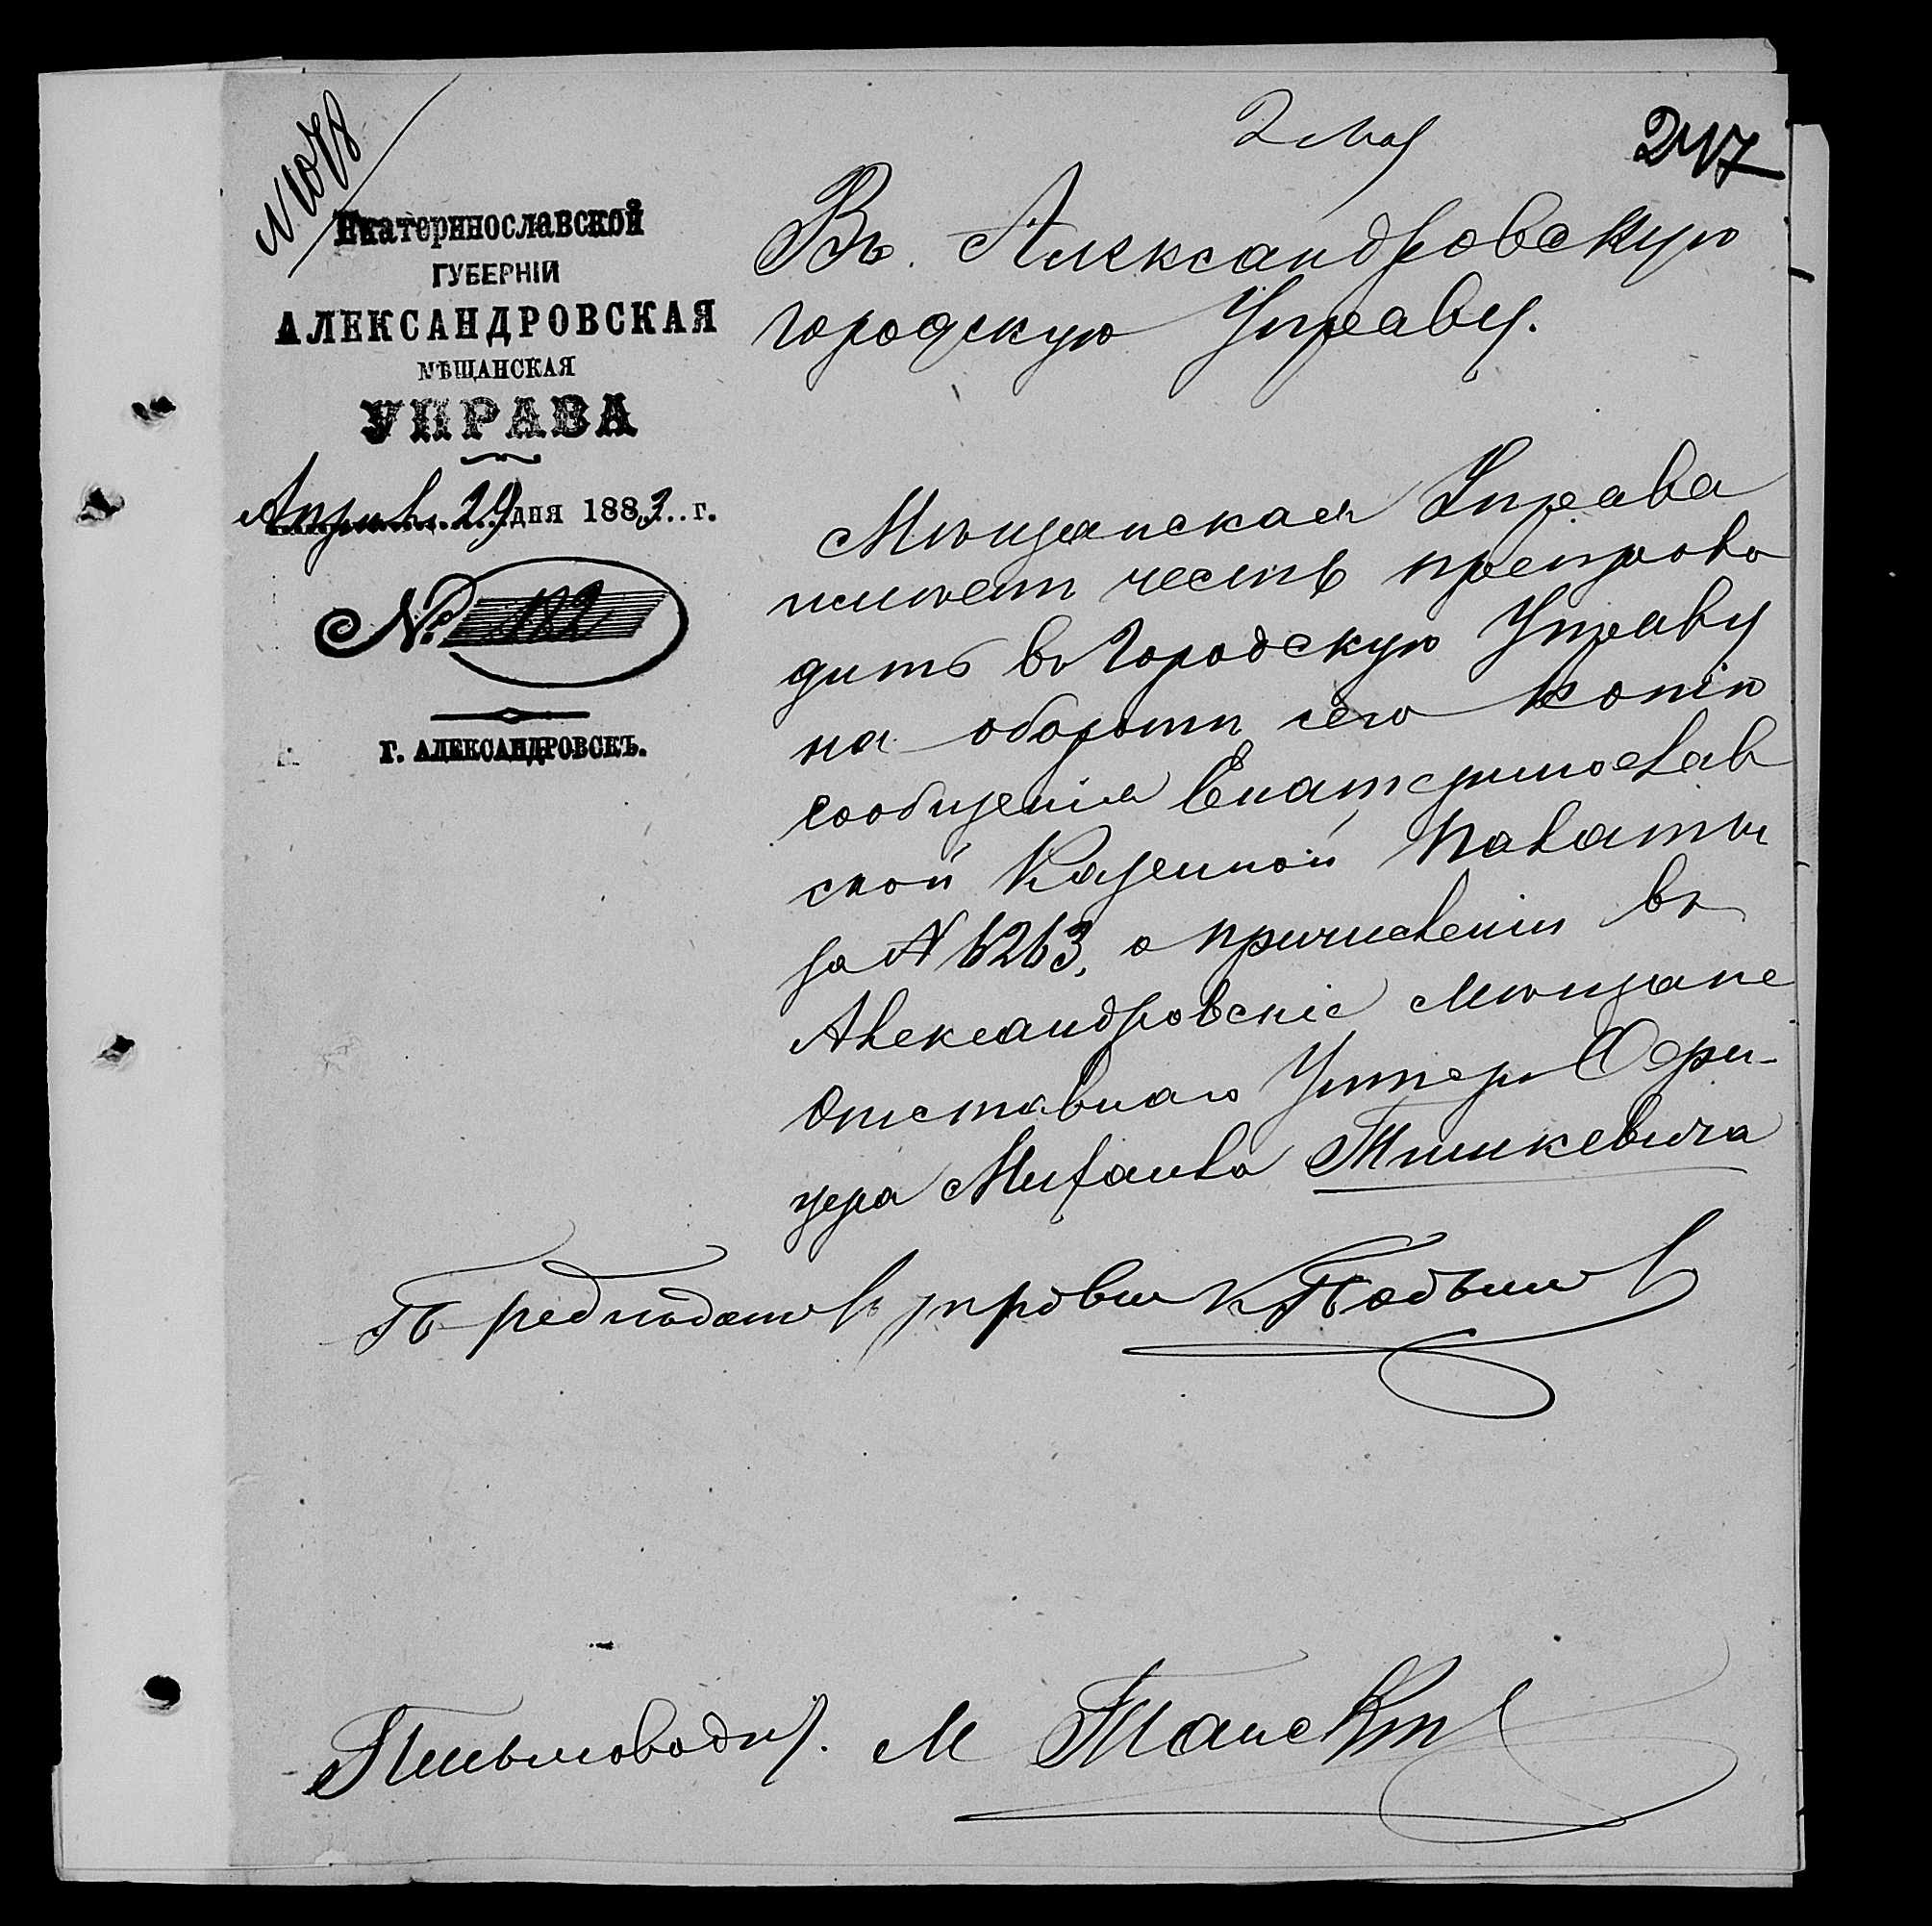 N 1078
2 Мая
247
Екатеринославской
ГУБЕРНІИ
АЛЕКСАНДРОВСКАЯ
МѢЩАНСКАЯ
УПРАВА
Апрѣля 29 дня 1883 г.
№ 182
Г. АЛЕКСАНДРОВСКЪ.
Въ Александровскую
городскую Управу.
Мѣщанская Управа
имѣетъ честь препрово
дить въ Городскую Управу
на оборотѣ сего копію
сообщенія Екатеринослав
ской Казенной Палаты
за N 6263, о причисленіи въ
Александровскіе Мѣщане
Отставнаго Унтеръ Офи-
цера Михаила Тишкевича
Письмовод. М